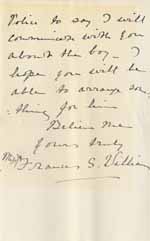 Police to say I will
communicate with you
about the boy. I
hope you will be
able to arrange some
thing for him
Believe me
Yours truly
Frances S. William